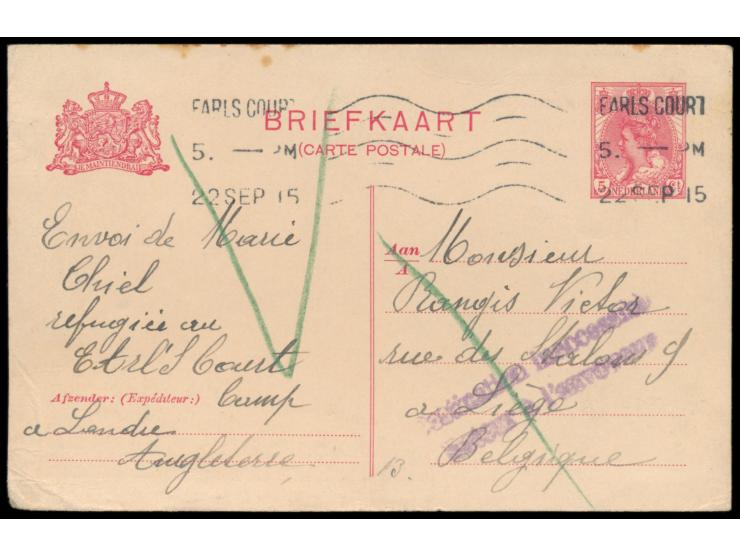 EARLS COURT
5. — PM
22 SEP 15
BRIEFKAART
(CARTE POSTALE)
JE MAINTIENDRAI
EARLS COURT
5. — PM
22 SEP 15
5 NEDERLAND
Envoi de Marie
Chiel
refugiée au
Earl'S Court
Afzender: (Expéditeur:) Camp
a Londre
Angleterre
Aan
A
Monsieur
Rangis Victor
rue des Stalons 9
a Liège
Belgique
13.